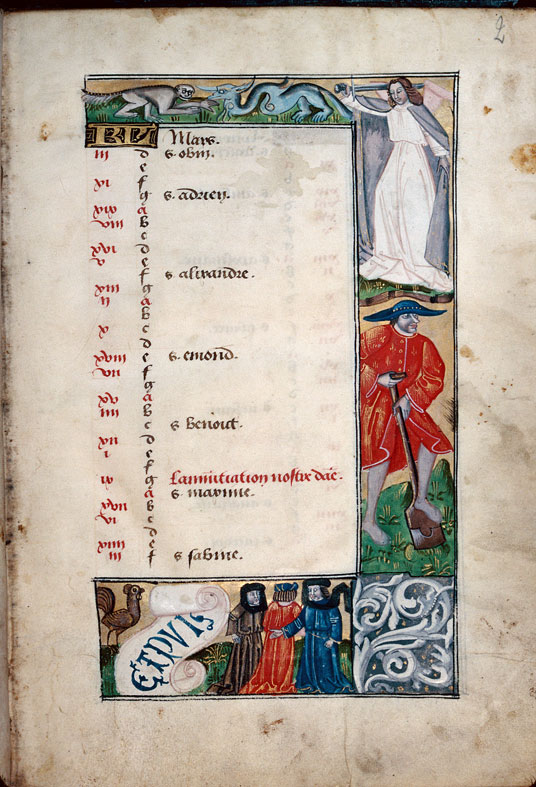 2
KL Mars.
iii d s. obin.
e
xi f
g s. adrien.
xix a
viii b
c
xvi d
v e
f s. alixandre.
xiii g
ii a
b
x c
d
xviii e s. emond.
vii f
g
xv a
iiii b
c s. benoit.
xii d
i e
f
ix g Lannūtiation nostre dāe.
a s. maxime.
xvii b
vi c
d
xiiii e
iii f s. sabine.
EXPVIS